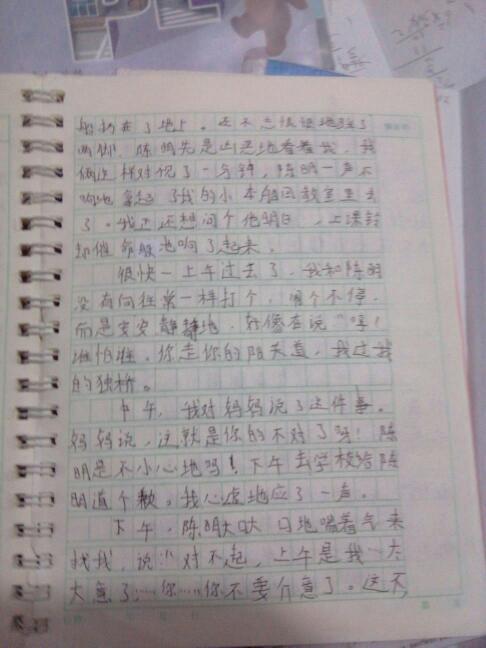 船扔在了地上。还不忘狠狠地踩了
两脚。陈明先是凶恶地看着我,我
俩这样对视了一分钟,陈明一声不
响地拿起了我的小本船回教室里去
了。我正还想问个他明白,上课铃
却催命般也响了起来。
很快一上午过去了,我和陈明
没有向往常一样打个,闹个不停,
而是安安静静地,好像在说"哼!
谁怕谁,你走你的阳关道,我过我
的独桥。
中午,我对妈妈说了这件事。
妈妈说,这就是你的不对了呀!陈
明是不小心地吗!下午去学校给陈
明道个歉。我心虚地应了一声。
下午,陈明大口大口地喘着气来
找我,说:"对不起,上午是我一大
大意了……你……你不要介意了。这不